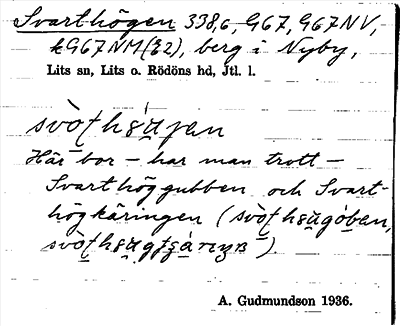 Svarthögen 338,6, G67, G67NV,
kG67NM(22), berg i Nyby,
Lits sn, Lits o. Rödöns hd, Jtl. l.
Här bor – har man trott –
Svarthöggubben och Svart-
högkäringen (
).
A. Gudmundson 1936.